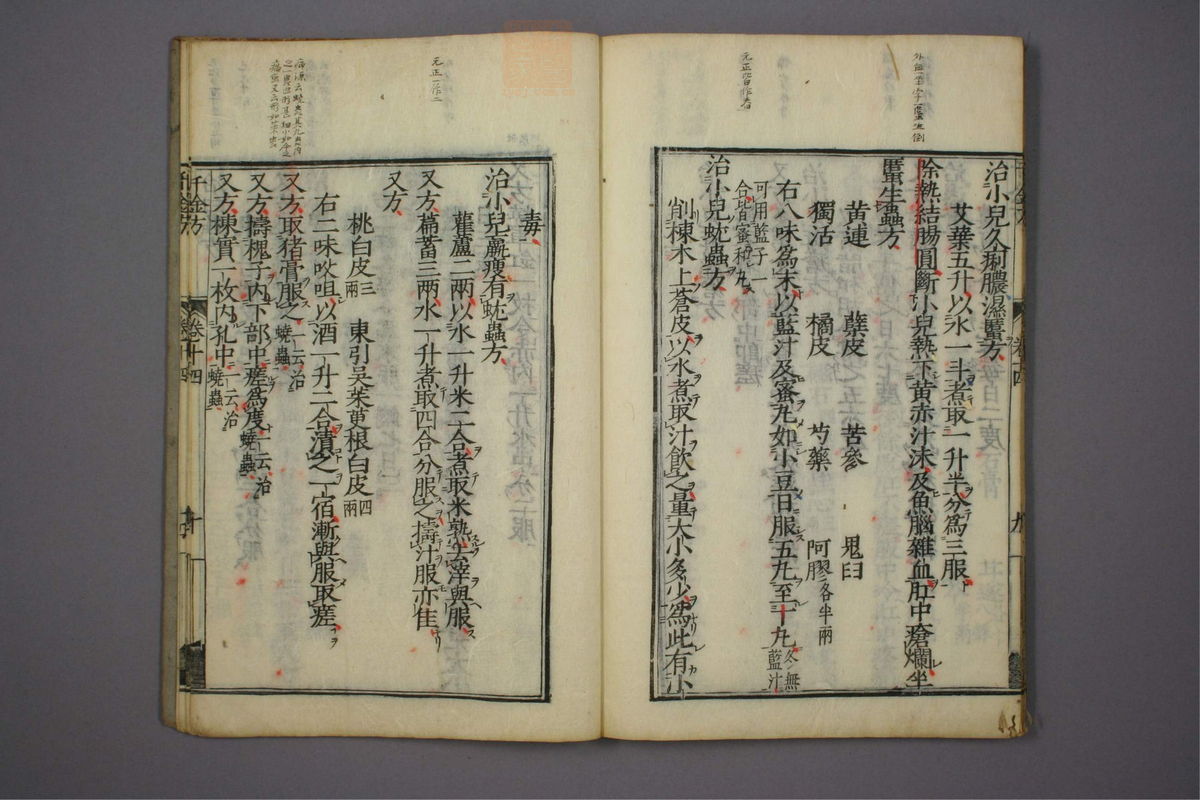 治小兒久痢膿濕䘌方
艾葉五升以水一斗煮取一升半分爲三服
除熱結腸圓斷小兒熱下黃赤汁沫及魚腦雜血肛中瘡爛坐
䘌生蟲方
黃連 蘗皮 苦參 鬼臼
獨活 橘皮 芍藥 阿膠各半兩
右八味爲末以藍汁及蜜丸如小豆日服五丸至十丸冬無藍汁
可用藍子一
合皆蜜和丸
治小兒蚘蟲方
削楝木上蒼皮以水煮取汁飲之量大小多少爲此有小
毒
治小兒羸瘦有蚘蟲方
雚蘆二兩以水一升米二合煮取米熟去滓與服
又方萹蓄三兩水一升煮取四合分服之擣汁服亦佳
又方
桃白皮三兩 東引吳茱萸根白皮四兩
右二味㕮咀以酒一升二合漬之一宿漸與服取瘥
又方取猪膏服之一云治蟯蟲
又方擣槐子內下部中瘥爲度一云治蟯蟲
又方楝實一枚內孔中一云治蟯蟲
千金方 卷十四 十
元正皆作者
元正一作二